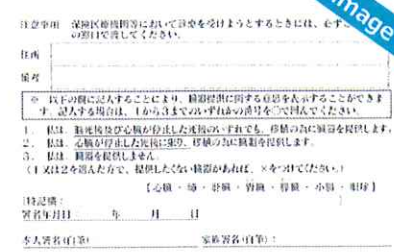 Image
注意事項 保険医療機関等において診療を受けようとするときには、必ず
の窓口で渡してください。
住所
備考
※ 以下の欄に記入することにより、臓器提供に関する意思を表示することができま
す。記入する場合は、1から3までのいずれかの番号を○で囲んでください。
1. 私は、脳死後及び心臓が停止した死後のいずれでも、移植の為に臓器を提供します。
2. 私は、心臓が停止した死後に限り、移植の為に臓器を提供します。
3. 私は、臓器を提供しません。
(1又は2を選んだ方で、提供したくない臓器があれば、×をつけてください。)
【心臓・肺・肝臓・腎臓・膵臓・小腸・眼球】
[特記欄: ]
署名年月日: 年 月 日
本人署名(自筆): 家族署名(自筆):